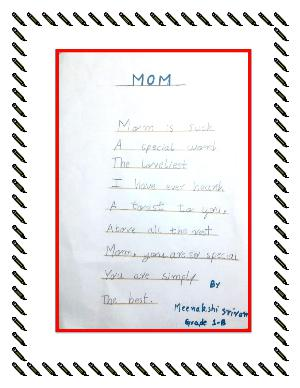 MOM
Mom is such
A special word
The Loveliest
I have ever hearth
A toast to you,
Above all the rest
Mom, you are so special
You are simply
The best.
By
Meenakshi Srivats
Grade 1-B